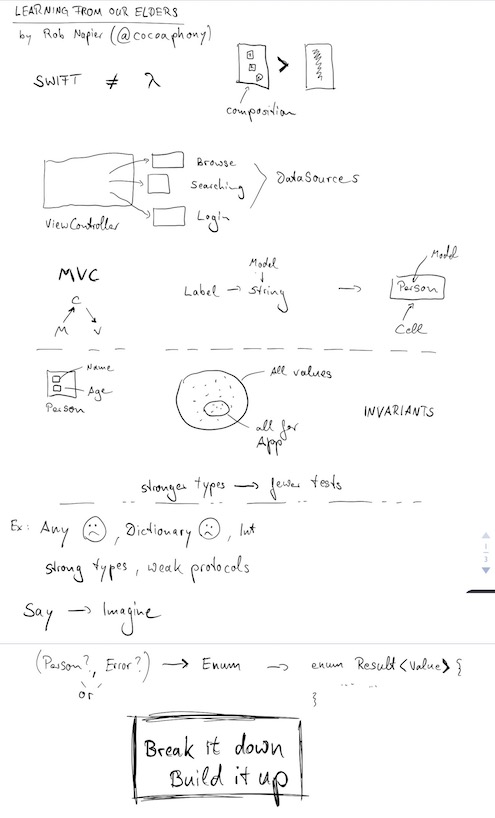 LEARNING FROM OUR ELDERS
by Rob Napier (@cocoaphony)
SWIFT ≠ λ
>
composition
Browse
Searching
Login
DataSources
ViewController
MVC
C
M V
Model
Label → String →
Model
Person
Cell
Name
Age
Person
All values
all for
App
INVARIANTS
stronger types → fewer tests
Ex: Any ☹, Dictionary ☹, Int
strong types, weak protocols
Say → Imagine
1
3
(Person?, Error?) → Enum → enum Result<Value> {
or
...
}
Break it down
Build it up